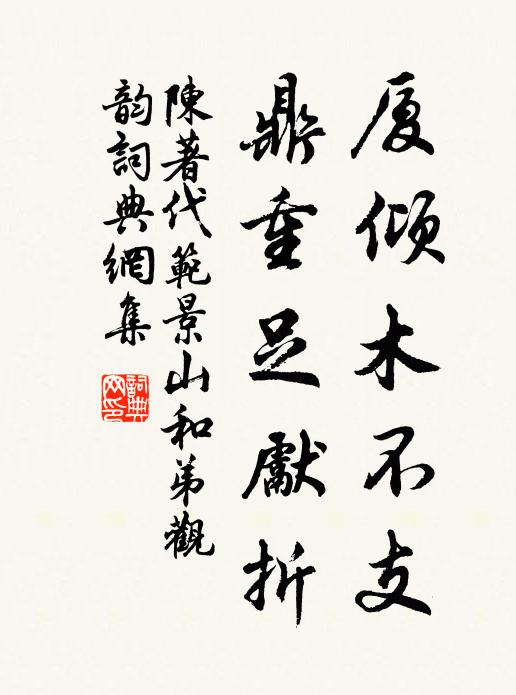 厦倾木不支
鼎重足獻折
陳著代範景山和弟觀
韵詞典網集
詞典网印